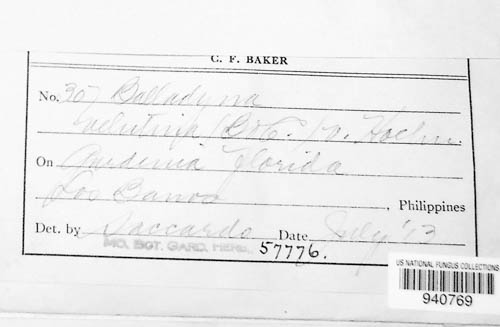 C. F. BAKER
No. 307 Balladyna
velutina (B&C.) v. Hoehn.
On Gardenia Florida
Los Banos, Philippines
Det. by Saccardo Date July '13
MO. BOT. GARD. HERB. 57776.
US NATIONAL FUNGUS COLLECTIONS
940769